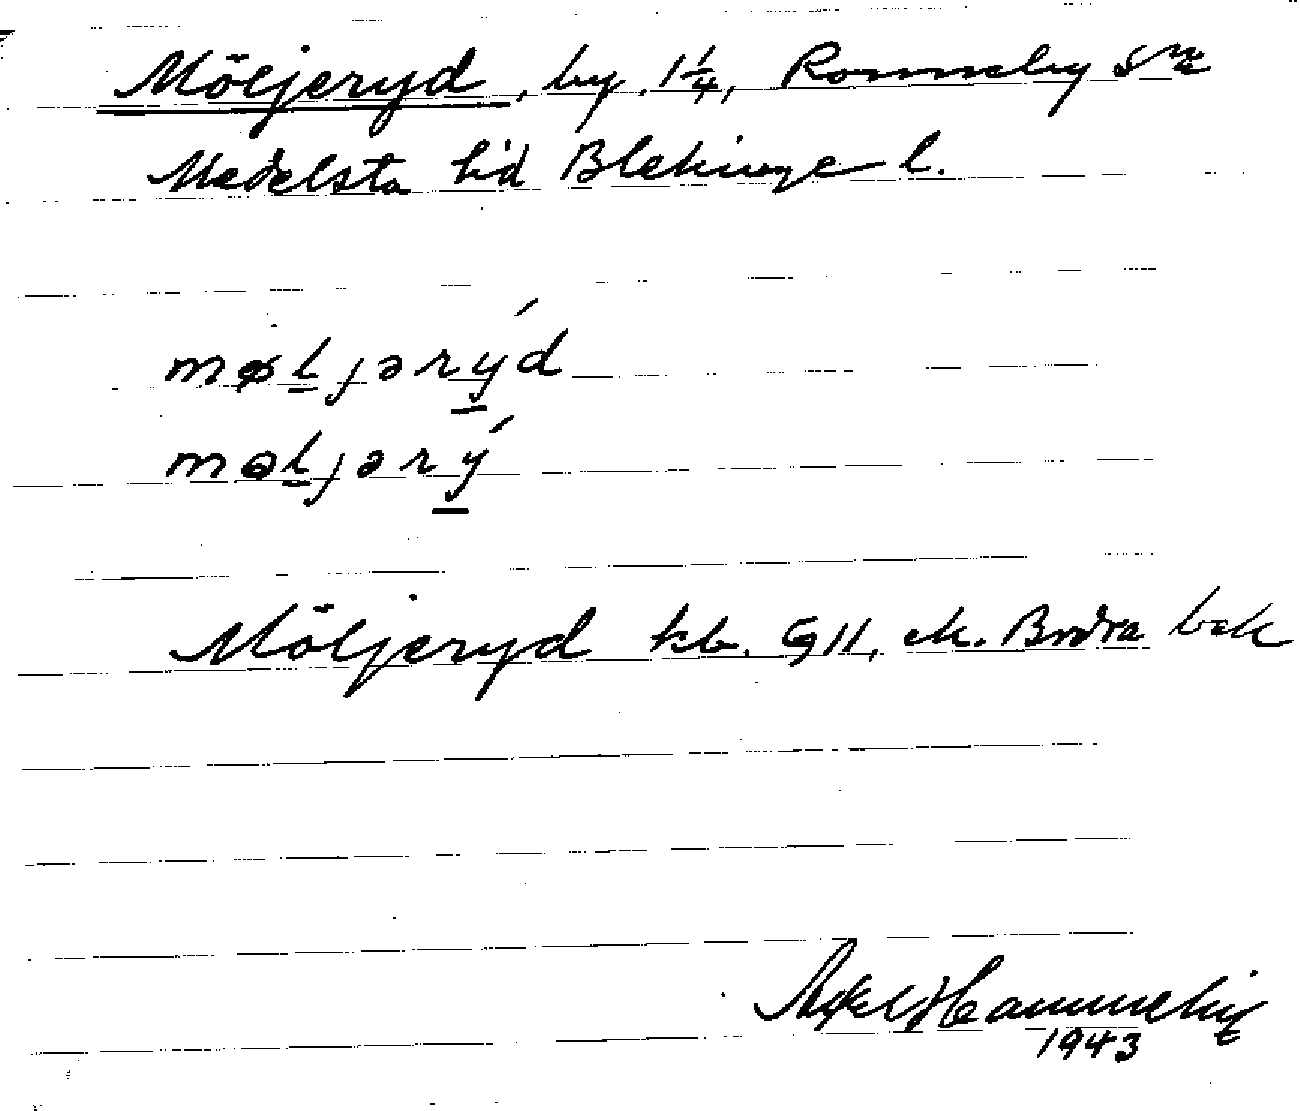 Möljeryd, by, 1 1/4, Ronneby sn
Medelsta hd Blekinge l.
møljərýd
məljərý
Möljeryd kb. GII, ek. Bräkne
Axel
1943